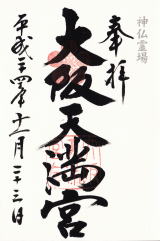 神仏霊場
奉拝
大阪天満宮
平成二四年十一月二十三日